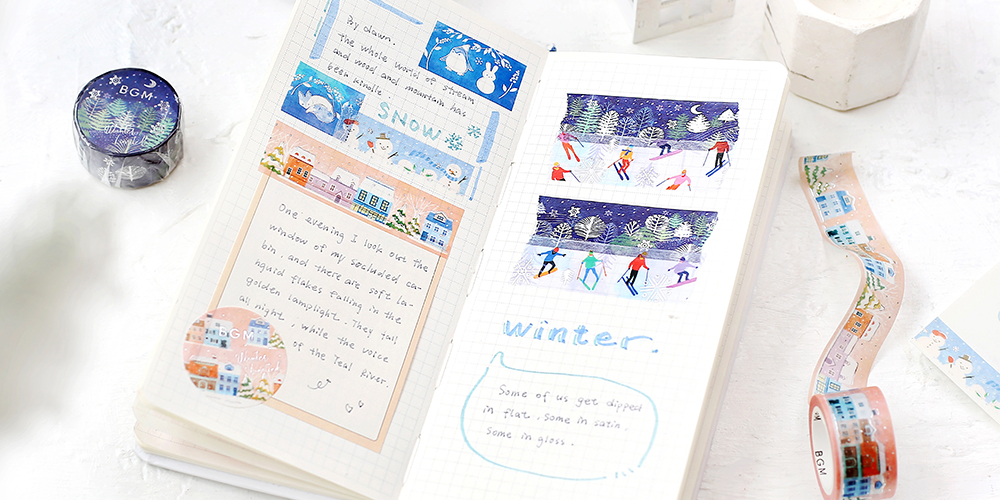 BGM
Winter
By dawn,
the whole world of stream
and wood and mountain has
been kindle
SNOW
One evening I look out the
window of my secluded ca-
bin, and there are soft la-
nguid flakes falling in the
golden lamplight. They fall
all night, while the voice
of the Teal River.
BGM
Winter
winter.
Some of us get dipped
in flat, some in satin,
some in gloss.
BGM